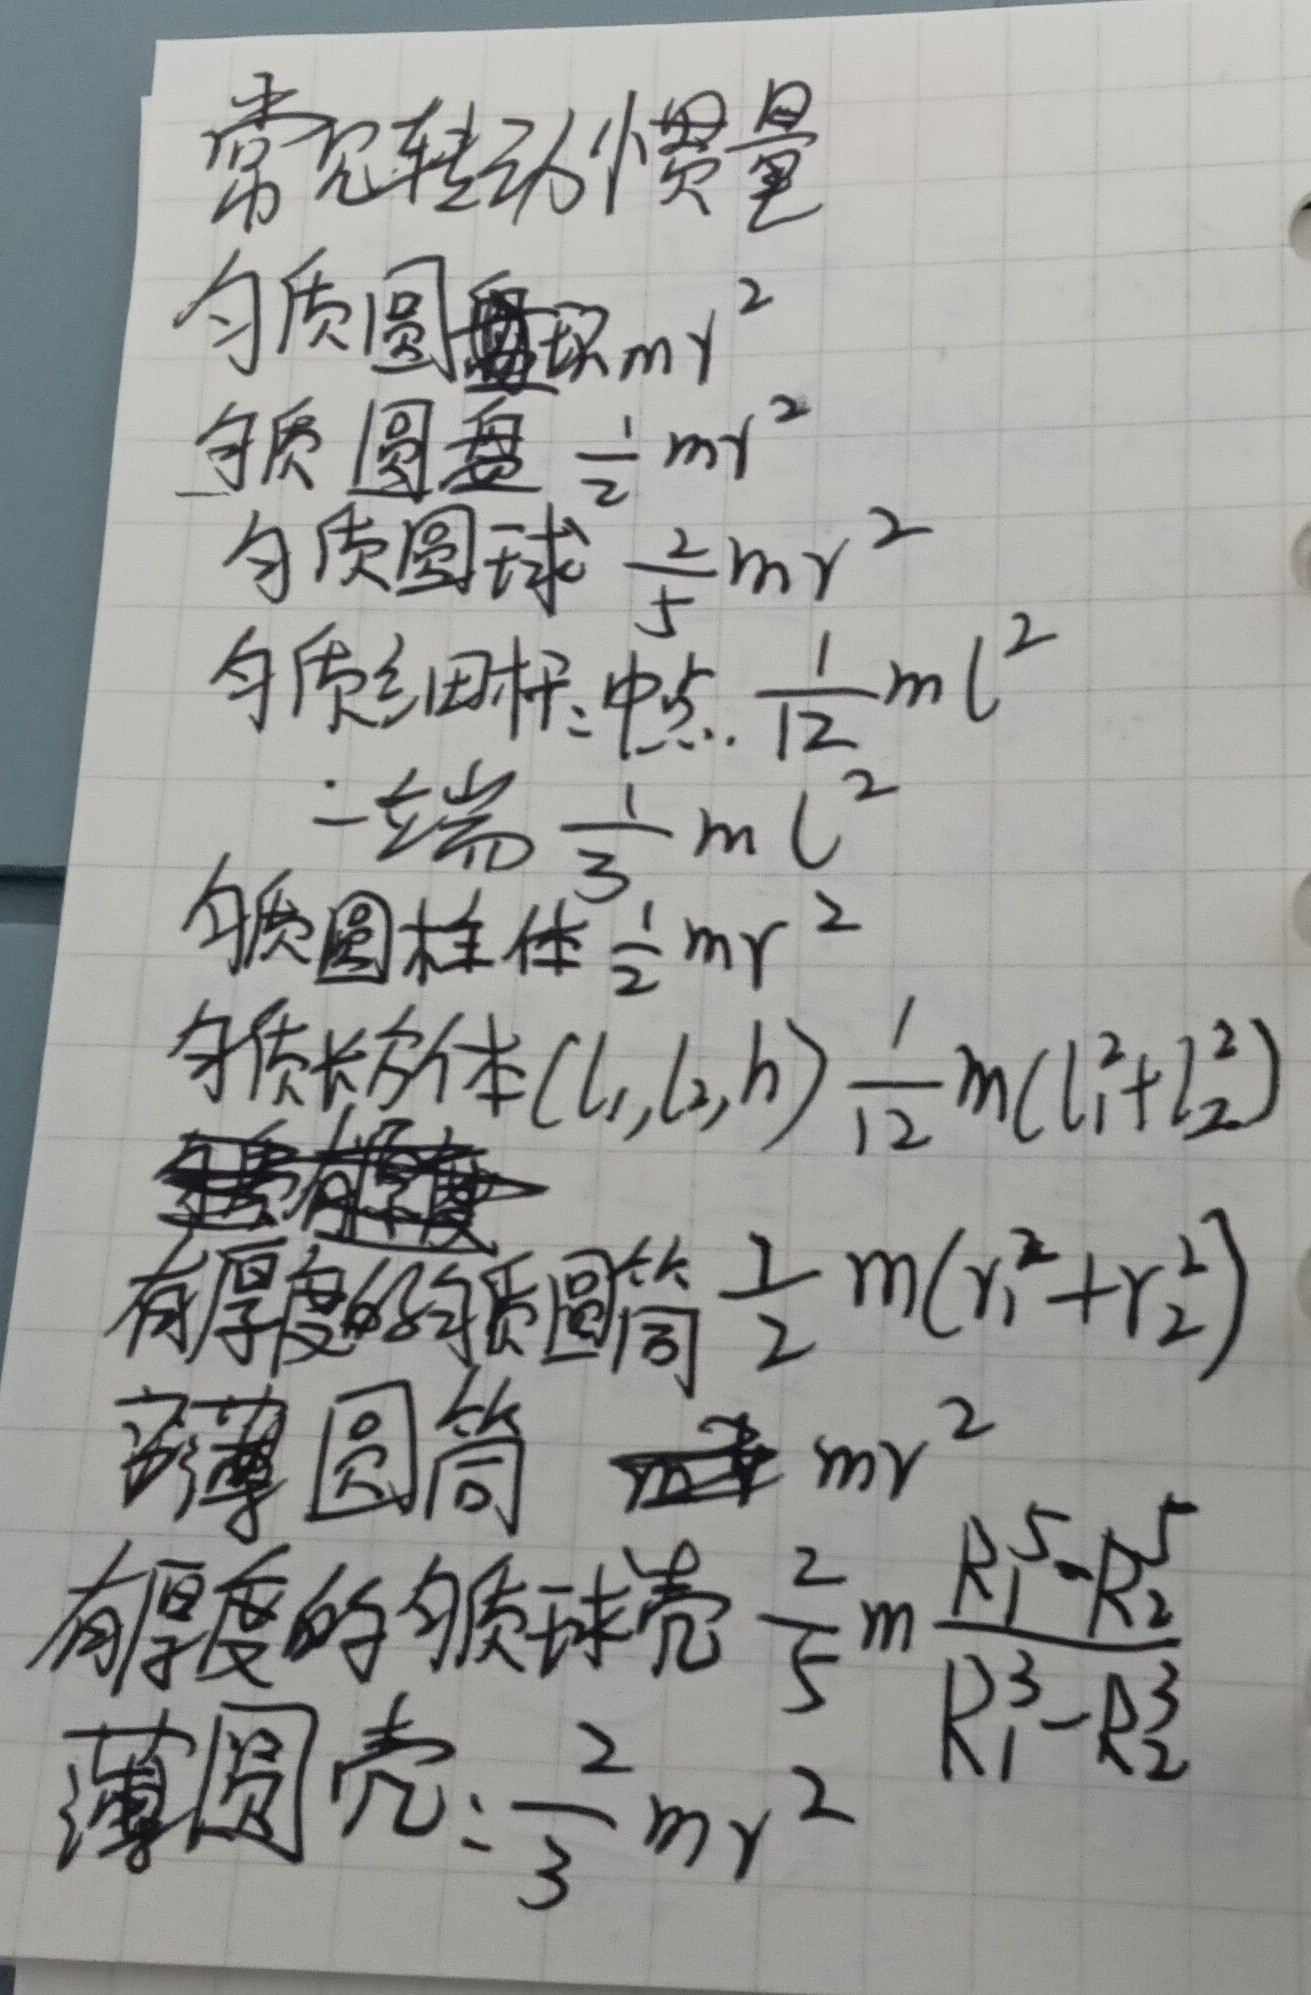 常见转动惯量
匀质圆环 mr²
匀质圆盘 1/2 mr²
匀质圆球 2/5 mr²
匀质细杆:中点. 1/12 ml²
:端 1/3 ml²
匀质圆柱体 1/2 mr²
匀质长方体(l₁,l₂,h) 1/12 m(l₁²+l₂²)
有厚度的匀质圆筒 1/2 m(r₁²+r₂²)
薄圆筒 mr²
有厚度的匀质球壳 2/5 m (R₁⁵-R₂⁵)/(R₁³-R₂³)
薄圆壳:2/3 mr²